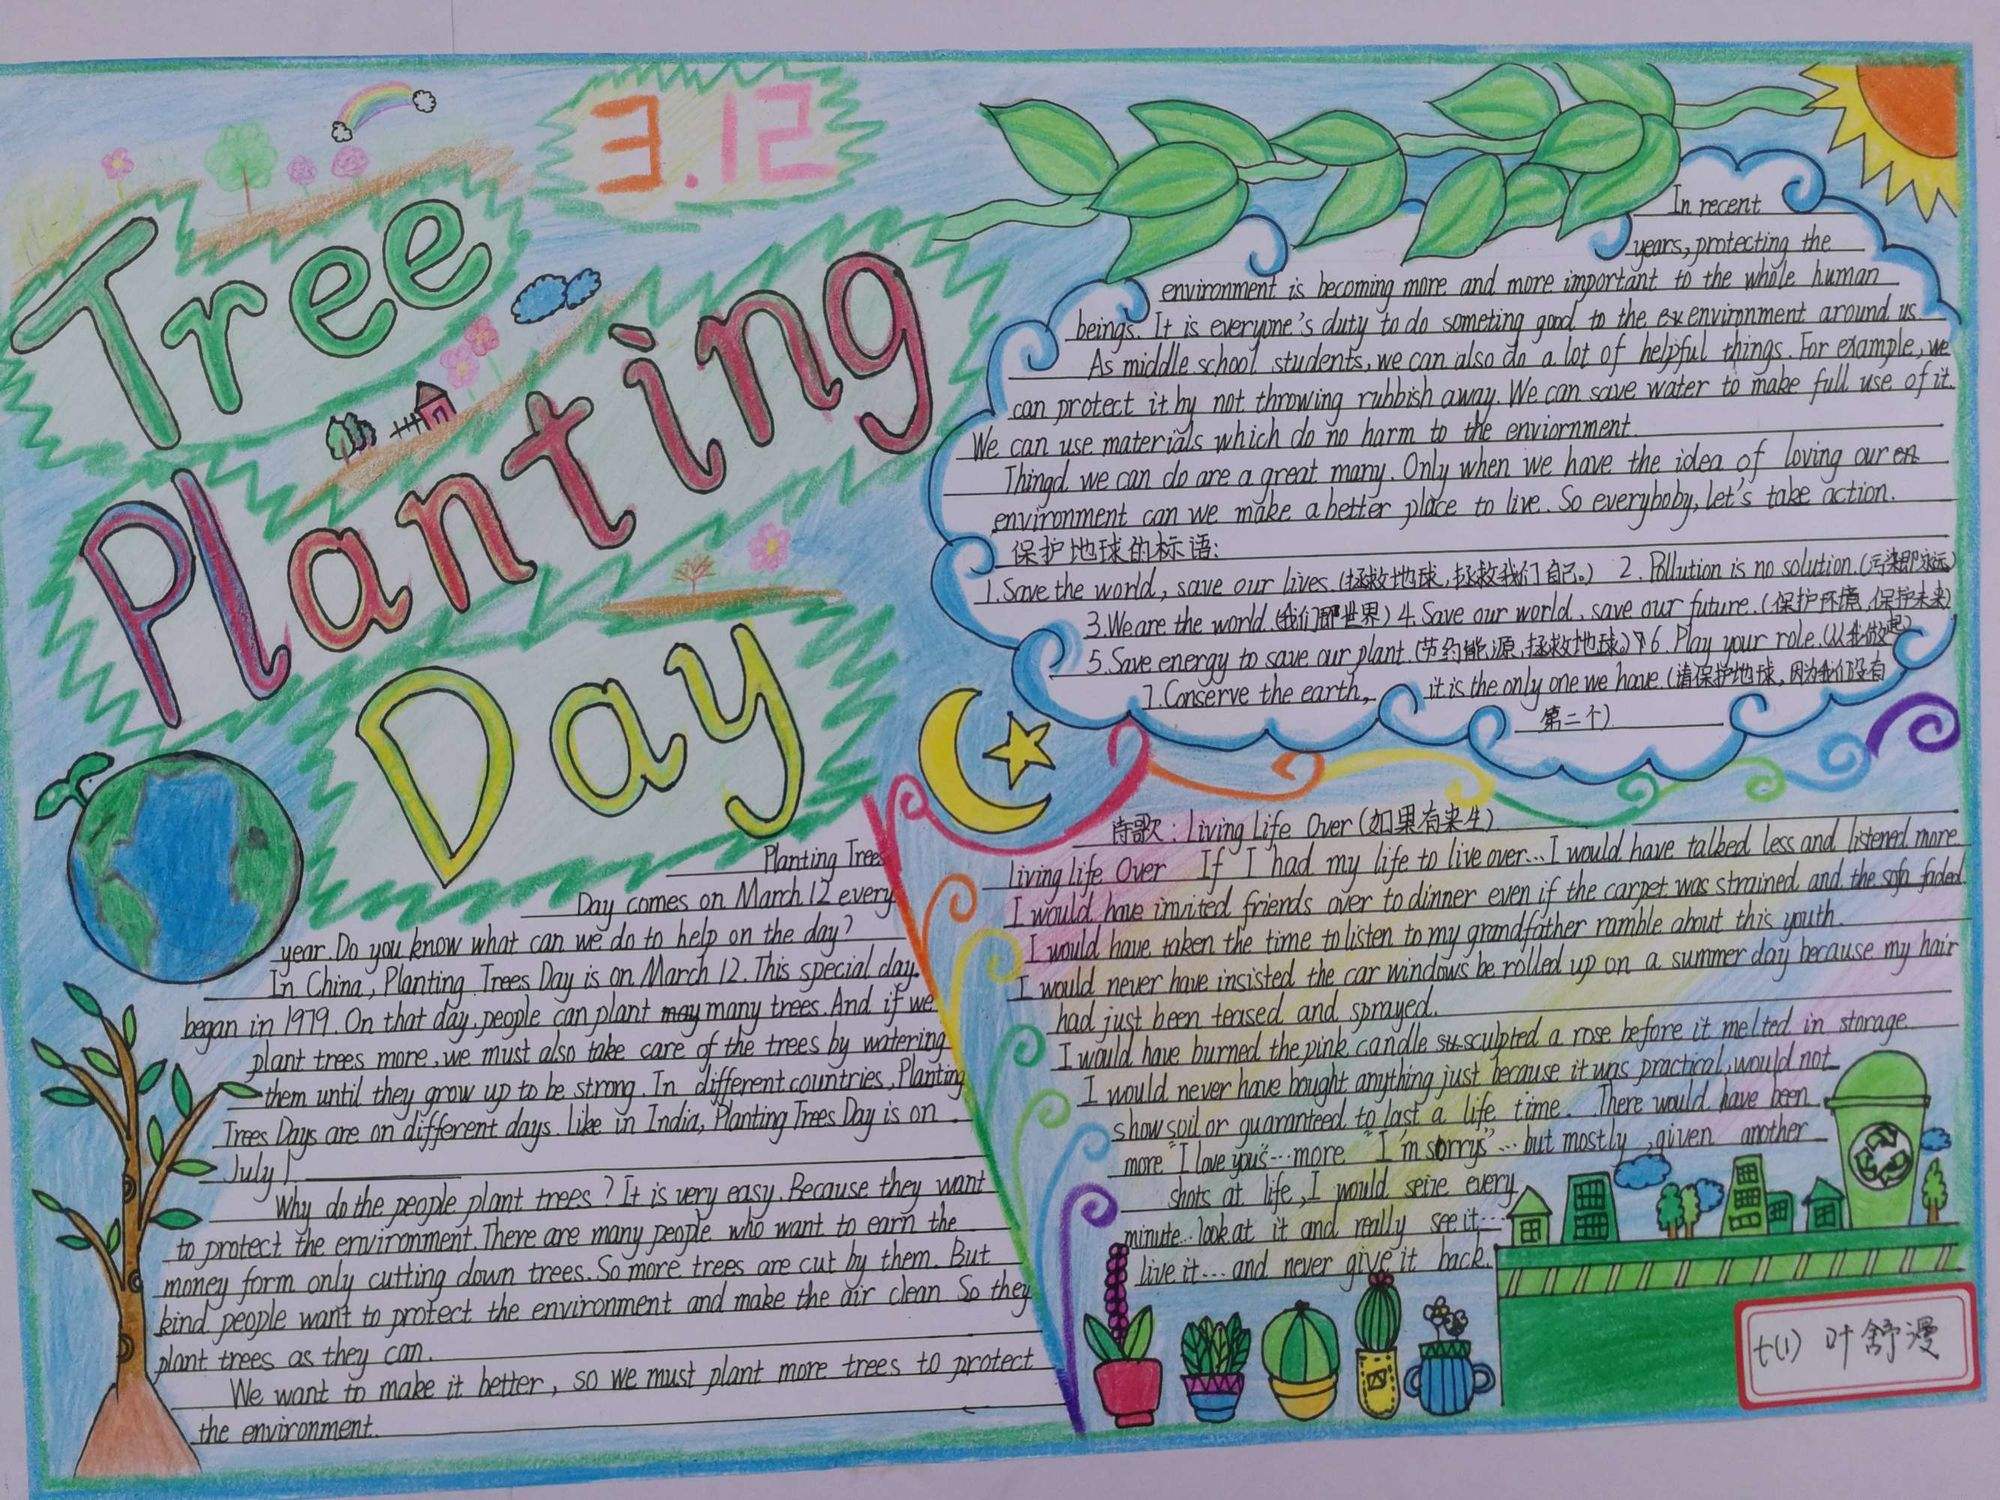 3.12
Tree
Planting
Day
Planting Trees
Day comes on March 12 every
year. Do you know what can we do to help on the day?
In China, Planting Trees Day is on March 12. This special day.
began in 1979. On that day, people can plant many trees. And if we
plant trees more, we must also take care of the trees by watering
them until they grow up to be strong. In different countries, Planting
Trees Days are on different days. like in India, Planting Trees Day is on
July 1
Why do the people plant trees? It is very easy. Because they want
to protect the environment. There are many people who want to earn the
money form only cutting down trees. So more trees are cut by them. But
kind people want to protect the environment and make the air clean So they
plant trees as they can.
We want to make it better, so we must plant more trees to protect
the environment.
In recent
years, protecting the
environment is becoming more and more important to the whole human
beings. It is everyone's duty to do someting good to the environment around us
As middle school students, we can also do a lot of helpful things. For example, we
can protect it by not throwing rubbish away. We can save water to make full use of it.
We can use materials which do no harm to the enviornment.
Thingd we can do are a great many. Only when we have the idea of loving our
environment can we make a better place to live. So everyboby, let's take action.
保护地球的标语:
1. Save the world, save our lives. (拯救地球,拯救我们自己。) 2. Pollution is no solution.
3. We are the world. (我们即世界) 4. Save our world, save our future. (保护环境,保护未来)
5. Save energy to save our plant. (节约能源,拯救地球。) 6. Play your role. (从我做起)
7. Conserve the earth, it is the only one we have. (请保护地球,因为我们没有
第二个)
诗歌: Living Life Over (如果有来生)
living life Over If I had my life to live over... I would have talked less and listened more
I would have invited friends over to dinner even if the carpet was strained and the sofa faded.
I would have taken the time to listen to my grandfather ramble about this youth.
I would never have insisted the car windows be rolled up on a summer day because my hair
had just been teased and sprayed.
I would have burned the pink candle sculpted a rose before it melted in storage
I would never have bought anything just because it was practical, would not
show soil or guaranteed to last a life time. There would have been
more "I love yous"... more "I'm sorrys"... but mostly, given another
shots at life, I would seize every
minute... look at it and really see it...
live it... and never give it back.
七(1) 叶舒漫